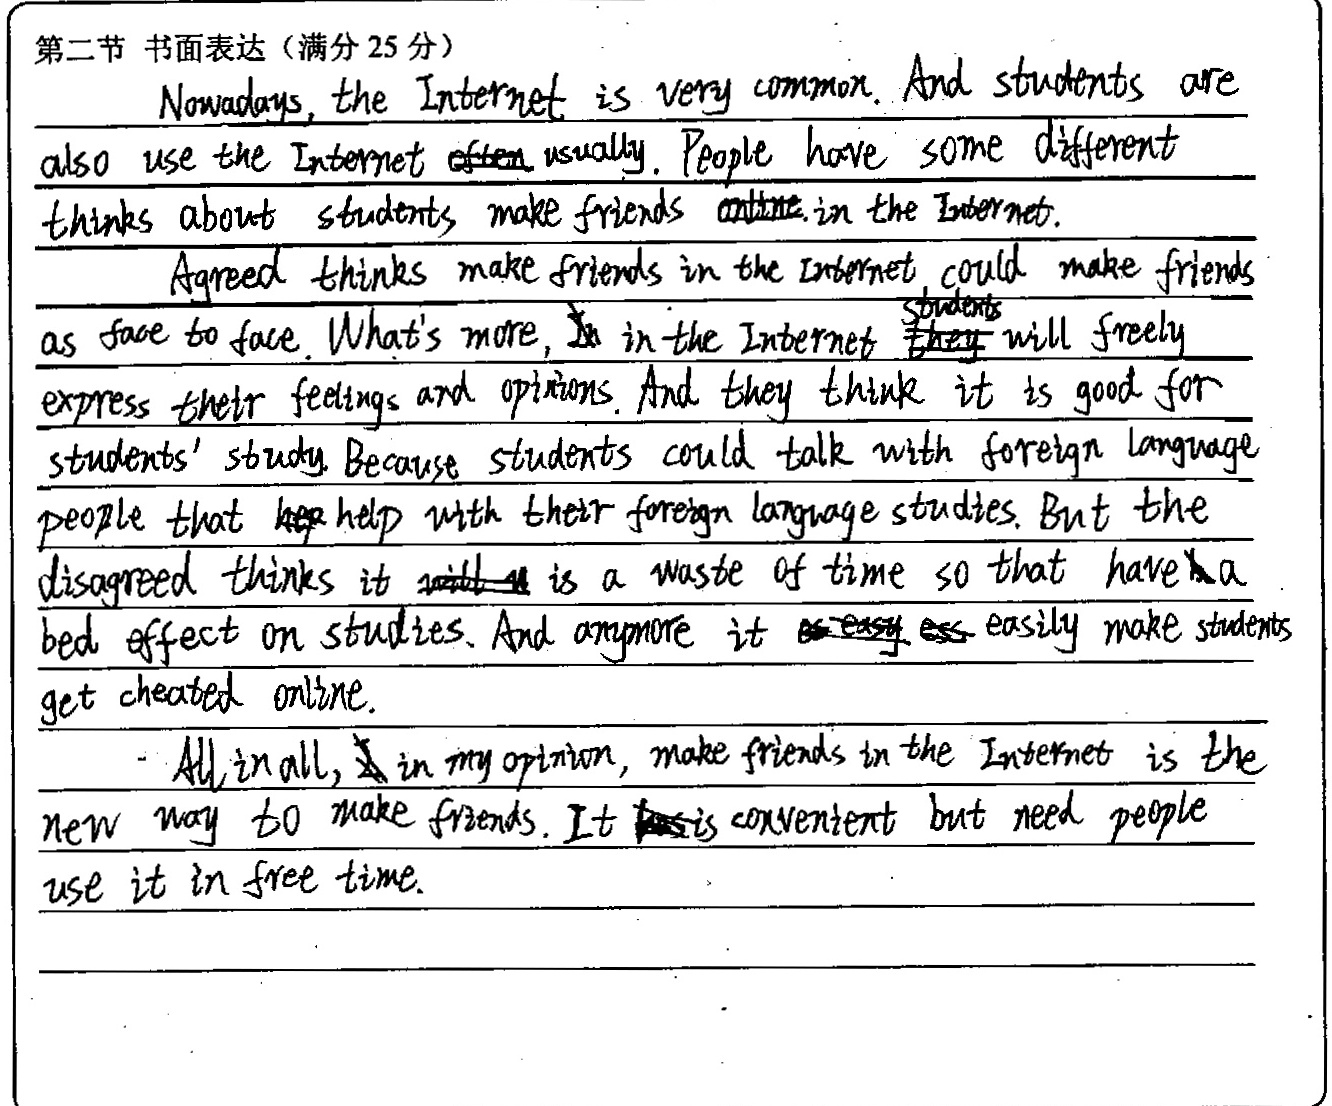 第二节 书面表达（满分 25 分）
Nowadays, the Internet is very common. And students are
also use the Internet often usually. People have some different
thinks about students make friends online. in the Internet.
Agreed thinks make friends in the Internet could make friends
students
as face to face. What's more, In in the Internet they will freely
express their feelings and opinions. And they think it is good for
students' study. Because students could talk with foreign language
people that hep help with their foreign language studies. But the
disagreed thinks it will is a waste of time so that have a
bed effect on studies. And anymore it es easy ess easily make students
get cheated online.
All in all, I in my opinion, make friends in the Internet is the
new way to make friends. It has is convenient but need people
use it in free time.